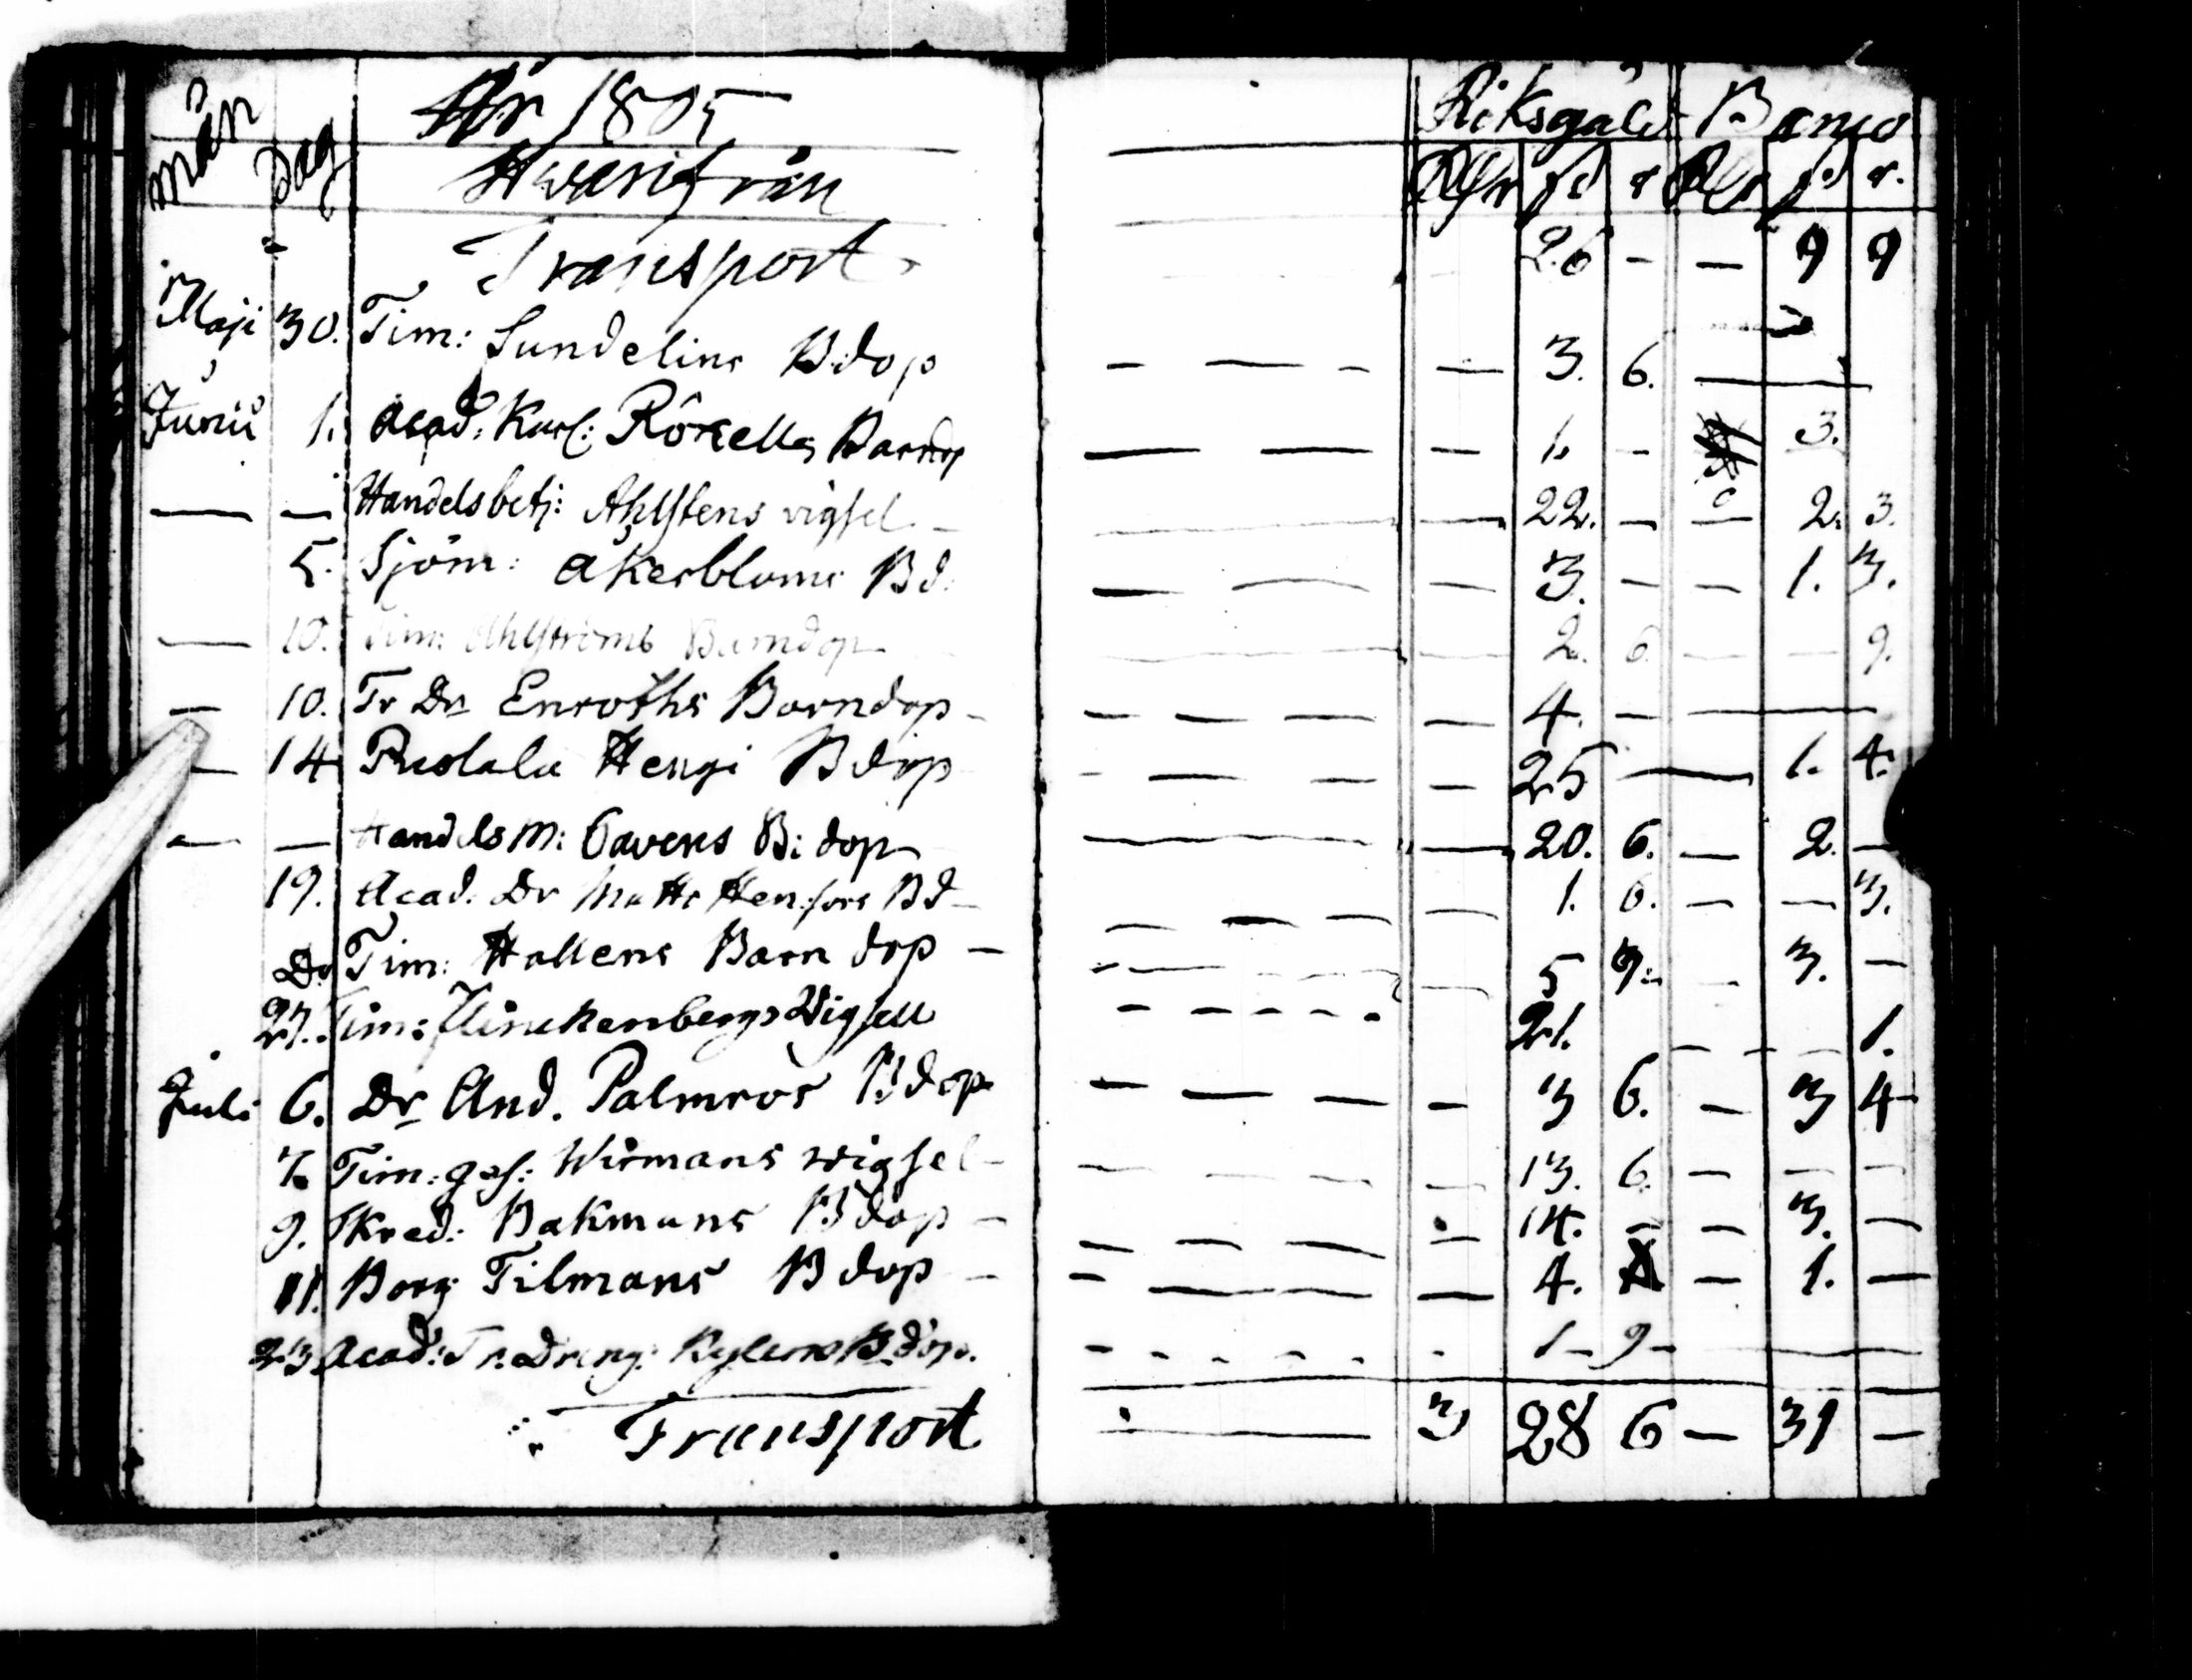 mån Dag År 1805 Riksgäld Banco
Hwarifrån Rdr sd r Rdr sd r.
Transport 26 - — 9 9
Maji 30. Tim: Sundelins B:dop — 3. 6. —
Junii 1. Acad: Karl: Barndop — 1. - 3.
— — Handelsbetj: Ahlstens vigsel — 22. — — 2. 3.
5. Sjöm: Åkerbloms Bd: — 3. - — 1. 3.
— 10. Tim: Ahlströms Barndop — 2. 6. — — 9.
— 10. Tr Dr Enroths Barndop — 4. — —
— 14 Hengi Bdop — 25 — 1. 4.
— — Handels M: B: dop — 20. 6. — 2. —
19. Acad. Dr Matts Bd — 1. 6. — — 3.
Do Tim: Hallens Barn dop — 5 9. — 3. —
27. Tim: Klinckenbergs Wigsell 21. — — — 1.
Juli 6. Dr And. Palmros Bdop — 3 6. — 3 4
7. Tim: ges: Wirmans wigsel — 13. 6. — — —
9. Skred: Bakmans Bdop — 14. — — 3. —
11. Borg Tilmans Bdop — 4. — 1. —
23 Acad: Tr. Dreng: B.dop. 1 - 9 - —
Transport — 3 28 6 — 31 —